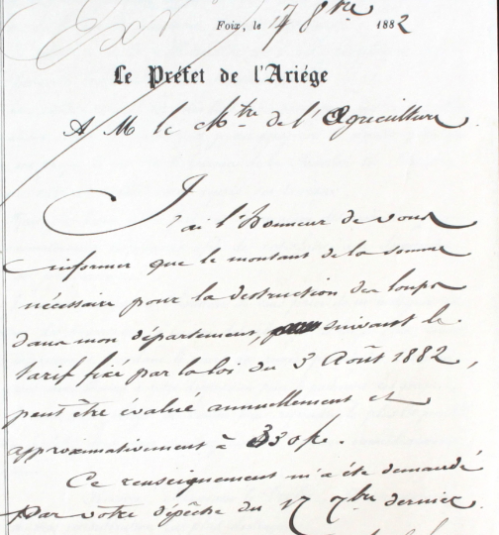 Foix, le 17 8bre 1882
Le Préfet de l'Ariége
A M le Mtre de l'Agriculture
J'ai l'honneur de vous
informer que le montant de la somme
nécessaire pour la destruction des loups
dans mon département, suivant le
tarif fixé par la loi du 3 Août 1882,
peut être évalué annuellement et
approximativement à 330 fr.
Ce renseignement m'a été demandé
par votre dépêche du 17 7bre dernier.